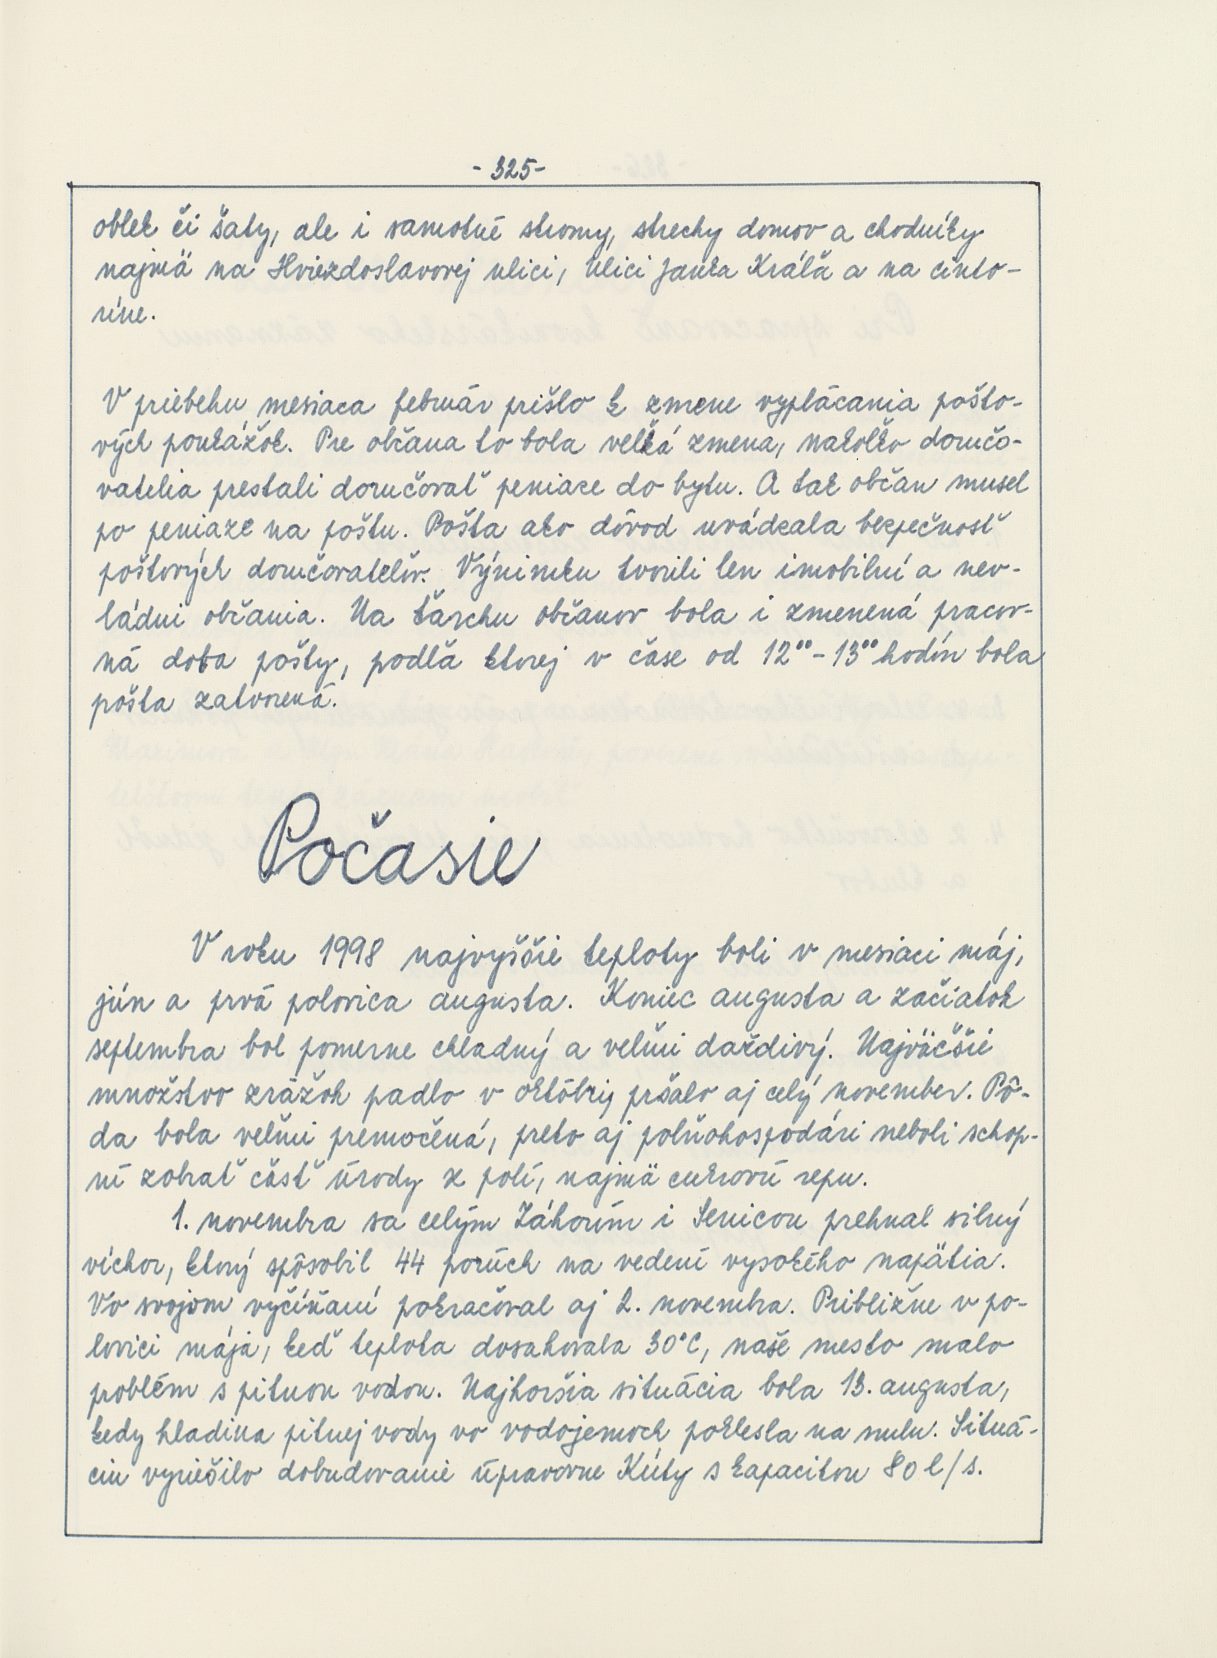 - 325 -
oblek či šaty, ale i samotné stromy, strechy domov a chodníky
najmä na Hviezdoslavovej ulici, Ulici Janka Kráľa a na cinto-
ríne.
V priebehu mesiaca február prišlo k zmene vyplácania pošto-
vých poukážok. Pre občana to bola veľká zmena, nakoľko doručo-
vatelia prestali doručovať peniaze do bytu. A tak občan musel
po peniaze na poštu. Pošta ako dôvod uvádzala bezpečnosť
poštových doručovateľov. Výnimku tvorili len imobilní a nev-
ládni občania. Na ťarchu občanov bola i zmenená pracov-
ná doba pošty, podľa ktorej v čase od 12⁰⁰ - 13⁰⁰ hodín bola
pošta zatvorená.
Počasie
V roku 1998 najvyššie teploty boli v mesiaci máj,
jún a prvá polovica augusta. Koniec augusta a začiatok
septembra bol pomerne chladný a veľmi daždivý. Najväčšie
množstvo zrážok padlo v októbri, pršalo aj celý november. Pô-
da bola veľmi premočená, preto aj poľnohospodári neboli schop-
ní zobrať časť úrody z polí, najmä cukrovú repu.
1. novembra sa celým Záhorím i Senicou prehnal silný
víchor, ktorý spôsobil 44 porúch na vedení vysokého napätia.
Vo svojom vyčíňaní pokračoval aj 2. novembra. Približne v po-
lovici mája, keď teplota dosahovala 30°C, naše mesto malo
problém s pitnou vodou. Najhoršia situácia bola 13. augusta,
kedy hladina pitnej vody vo vodojemoch poklesla na nulu. Situá-
ciu vyriešilo dobudovanie úpravovne Kúty s kapacitou 80 l/s.